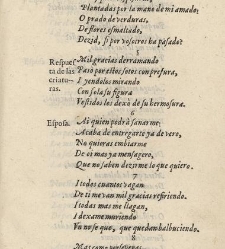 Plantadas por la mano de mi amado:
O prado de verduras,
De flores esmaltado,
Dezid, si por vosotros ha pasado?
5
Respues
ta de las
criatu-
ras.
Mil gracias derramando
Paso por estos sotos con presura,
I yendolos mirando
Con sola su figura
Vestidos los dexò de su hermosura.
6
Esposa.
Ai quien podrà sanarme?
Acaba de entregarte ya de vero,
No quieras embiarme
De oi mas ya mensagero,
Que no saben dezirme lo que quiero.
7
I todos cuantos vagan
De ti me van mil gracias refiriendo.
I todas mas me llagan,
I dexame muriendo
Un no se que, que quedan balbuciendo.
8